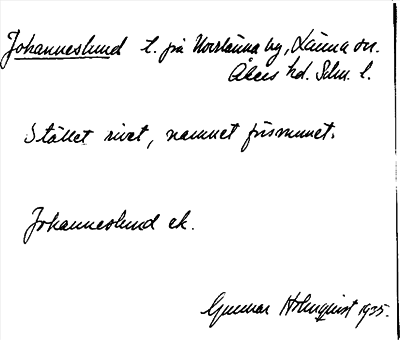 Johanneslund t. på Norrlänna by, Länna sn.
Åkers hd. Sdm. l.
Stället rivet, namnet försvunnet.
Johanneslund ek.
Gunnar Holmquist 1935.